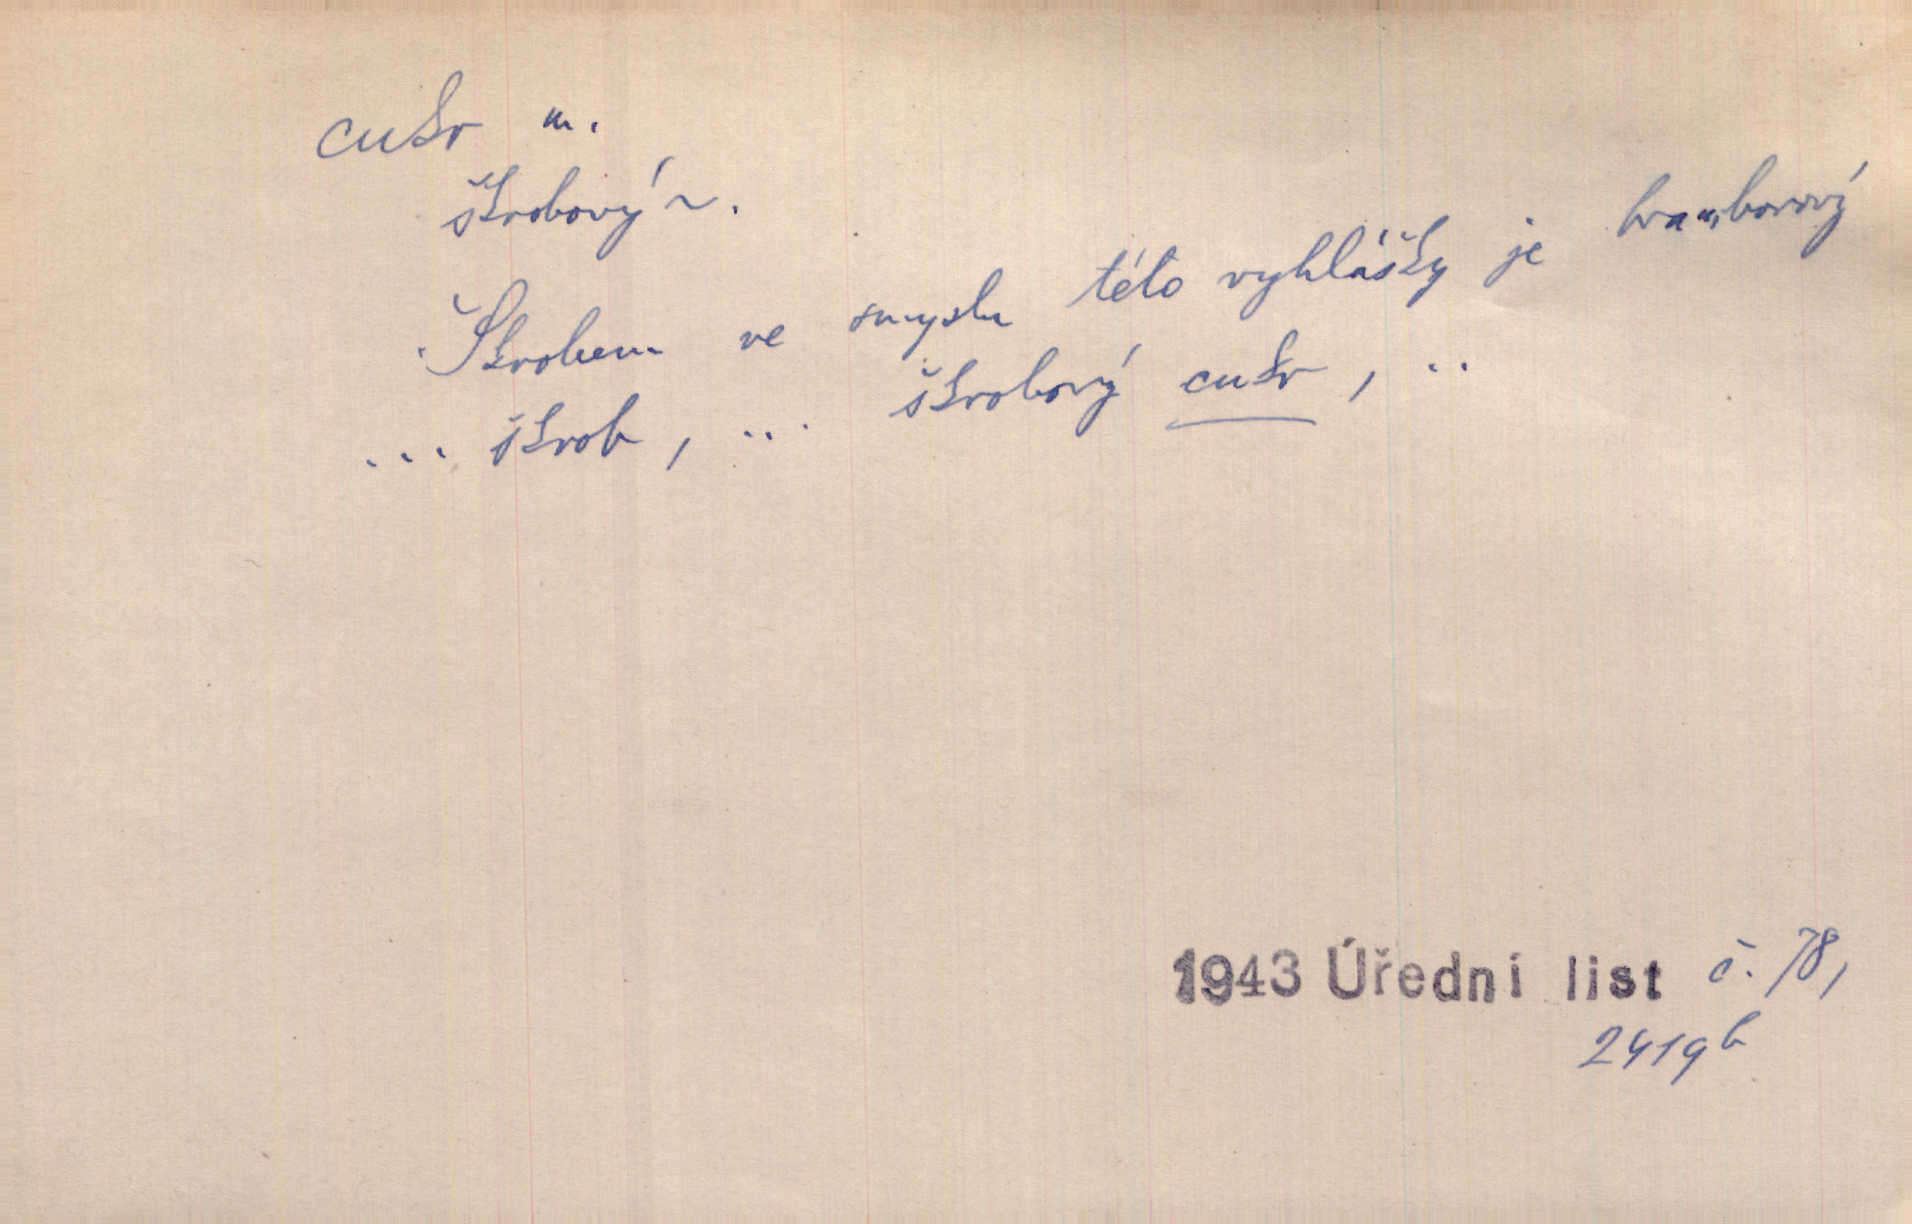 cukr m.
škrobový ~.
Škrobem ve smyslu této vyhlášky je bramborový
... škrob, ... škrobový cukr, ..
1943 Úřední list č. 78,
2419b